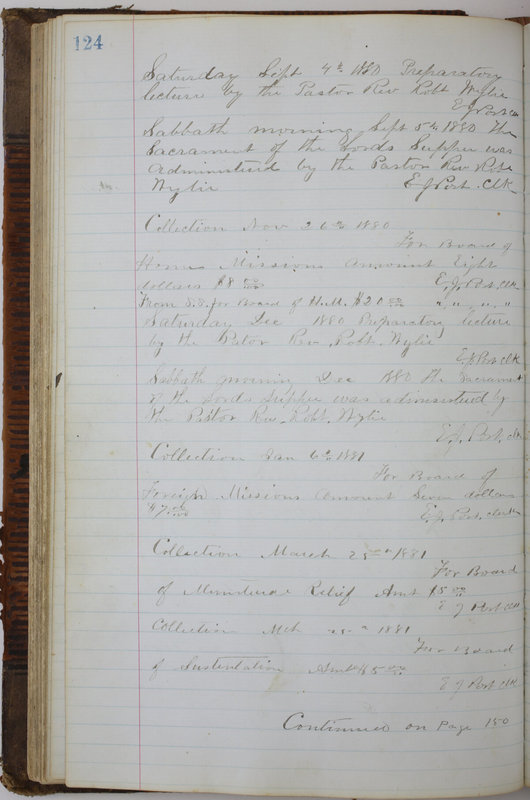 124
Saturday Sept 4th 1880 Preparatory
lecture by the Pastor Rev Robt Wylie
E J Post Clk
Sabbath morning Sept 5th 1880 The
Sacrament of the Lords Supper was
administered by the Pastor Rev Robt
Wylie E J Post. Clk
Collection Nov 26th 1880
For Board of
Home Missions Amount Eight
dollars $8 00/100 E, J, Post, Clk
From S.S. for Board of H.M. $20 00 " " " "
Saturday Dec 1880 Preparatory lecture
by the Pastor Rev, Robt, Wylie
E J Post Clk
Sabbath morning Dec 1880 the Sacrament
of the Lords Supper was administered by
the Pastor Rev, Robt, Wylie
E J, Post, clk
Collection Jan 6th 1881
For Board of
Foreign Missions Amount Seven dollars
$7 00/100 E, J, Post, Clerk
Collection March 1881
For Board
of Ministerial Relief Amt $5 00
E J Post Clk
Collection Mch 1881
For Board
of Sustentation Amt $5 00
E J Post Clk
Continued on Page 150